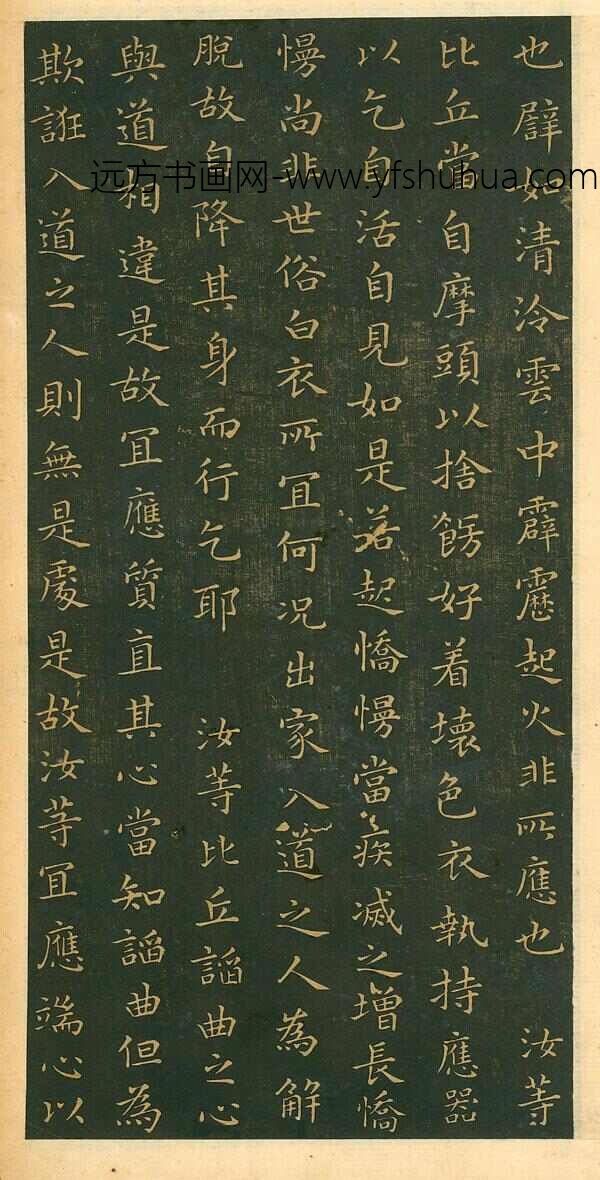 也譬如清泠雲中霹靂起火非所應也　汝等
比丘當自摩頭以捨餝好着壞色衣執持應器
以乞自活自見如是若起憍慢當疾滅之增長憍
慢尚非世俗白衣所宜何况出家入道之人為解
脫故自降其身而行乞耶　汝等比丘謟曲之心
與道相違是故宜應質直其心當知謟曲但為
欺誑入道之人則無是處是故汝等宜應端心以
远方书画网-www.yfshuhua.com